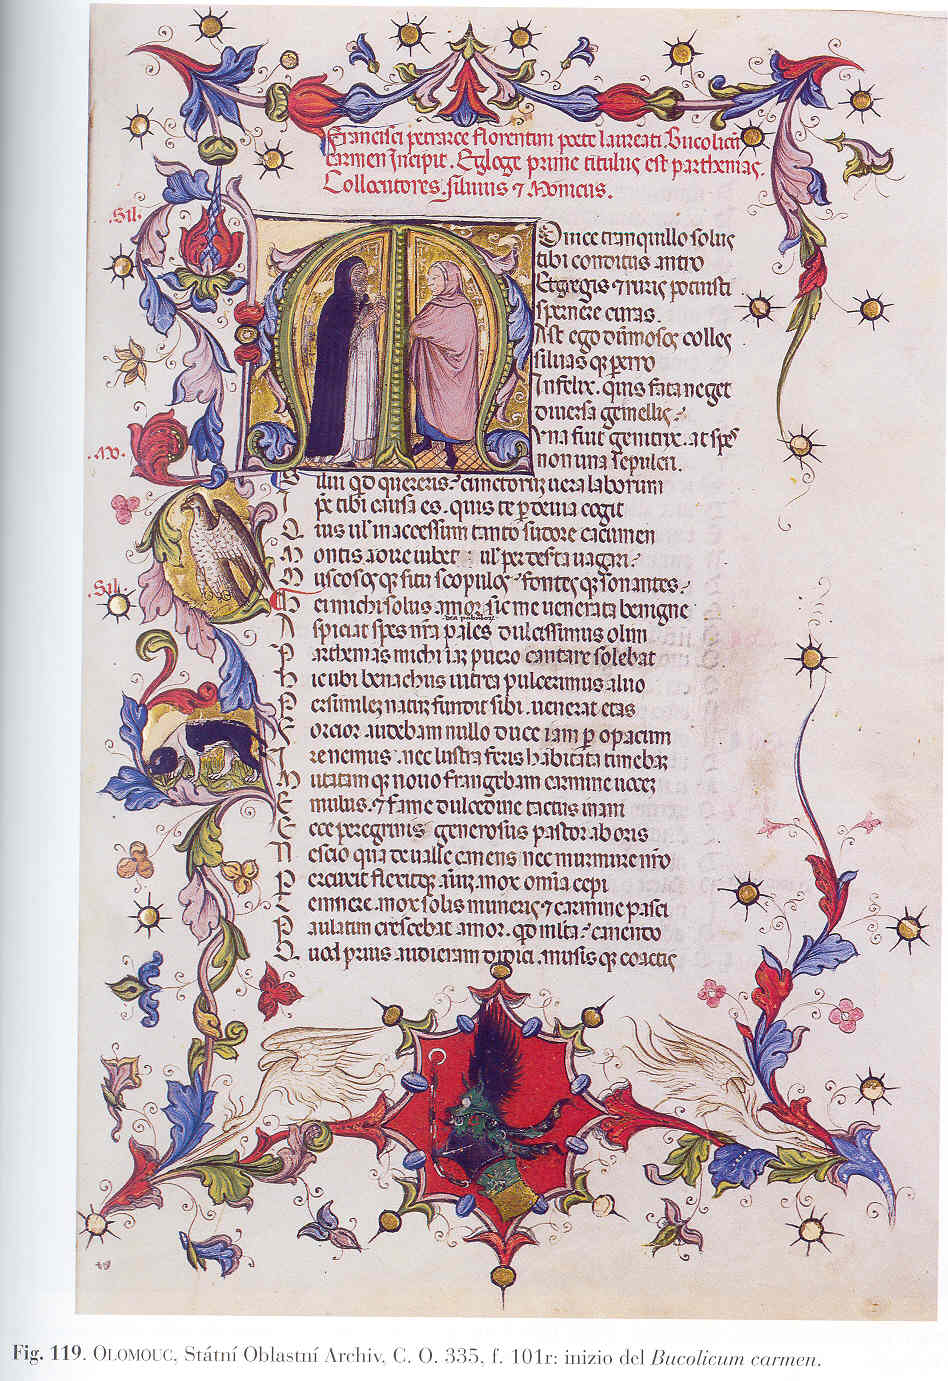 Francisci petrarce florentini poete laureati. Bucolicū
carmen Incipit. Egloge prime titulus est parthenias.
Collocutores. siluius ⁊ Monicus.
.Sil.
Onice tranquillo solus
tibi conditus antro
Et gregis ⁊ ruris potuisti
spernere curas.
Ast ego dūmosos colles
siluas qꝫ pererro
Infelix. quis fata neget
diuersa gemellis
vna fuit genitrix. at spes
non una sepulcri.
.Mo.
Silui qd quereris. cunctorum uera laborum
Ipe tibi causa es. quis te p deuia cogit
Quis ul' inaccessum tanto sudore cacumen
Montis adire iubet ul' per deserta uagari
Muscosos qꝫ situ scopulos fontes qꝫ sonantes
Sil.
Hei michi solus amor sic me uenerata benigne
Aspiciat spes nr̄a pales dulcissimus olim
Parthenias michi iaꝫ puero cantare solebat
Hic ubi benachus uitrea pulcerrimus aluo
Persimileꝫ natuꝫ fundit sibi. uenerat etas
Forcior audebam nullo duce iam p opacum
Ire nemus. nec lustra feris habitata timebaꝫ
Mutatam qꝫ nouo frangebam carmine uoceꝫ
Emulus. ⁊ fame dulcedine tactus inani
Ecce peregrinis generosus pastor ab oris
Nescio qua de ualle canens nec murmure nr̄o
Percutit flexitqꝫ aīuꝫ. mox omīa cepi
Temnere. mox solis numeris ⁊ carmine pasci
Paulatim crescebat amor. qd multa canendo
Quod prius audieram didici. musis qꝫ coactis
Fig. 119. OLOMOUC, Státní Oblastní Archiv, C. O. 335, f. 101r: inizio del Bucolicum carmen.